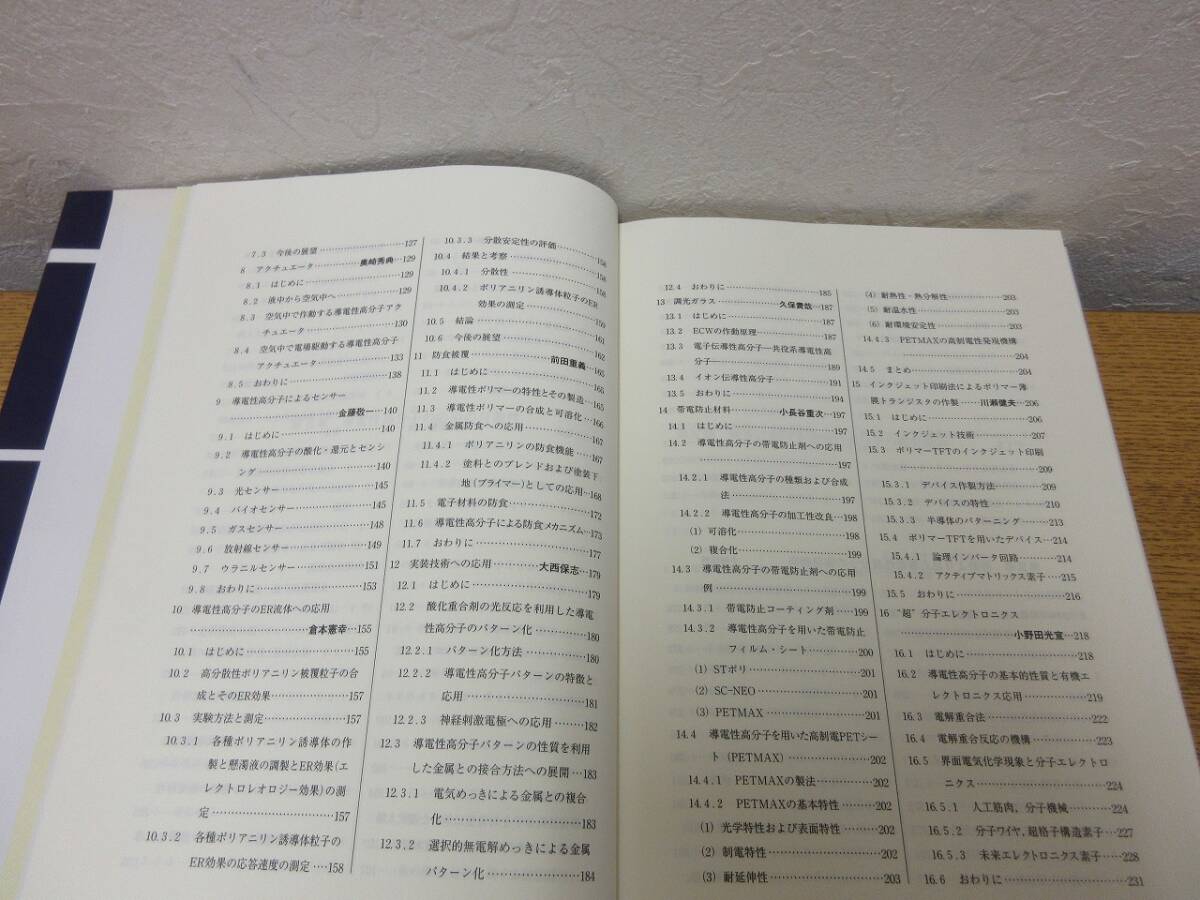 7.3 今後の展望 ……127
8 アクチュエータ ……奥崎秀典…129
8.1 はじめに ……129
8.2 液中から空気中へ ……129
8.3 空気中で作動する導電性高分子アク
チュエータ ……130
8.4 空気中で電場駆動する導電性高分子
アクチュエータ ……133
8.5 おわりに ……138
9 導電性高分子によるセンサー
……金藤敬一…140
9.1 はじめに ……140
9.2 導電性高分子の酸化・還元とセンシ
ング ……140
9.3 光センサー ……145
9.4 バイオセンサー ……145
9.5 ガスセンサー ……148
9.6 放射線センサー ……149
9.7 ウラニルセンサー ……151
9.8 おわりに ……153
10 導電性高分子のER流体への応用
……倉本憲幸…155
10.1 はじめに ……155
10.2 高分散性ポリアニリン被覆粒子の合
成とそのER効果 ……157
10.3 実験方法と測定 ……157
10.3.1 各種ポリアニリン誘導体の作
製と懸濁液の調製とER効果(エ
レクトロレオロジー効果)の測
定 ……157
10.3.2 各種ポリアニリン誘導体粒子の
ER効果の応答速度の測定 …158
10.3.3 分散安定性の評価 ……158
10.4 結果と考察 ……158
10.4.1 分散性 ……158
10.4.2 ポリアニリン誘導体粒子のER
効果の測定 ……159
10.5 結論 ……161
10.6 今後の展望 ……162
11 防食被覆 ……前田重義…165
11.1 はじめに ……165
11.2 導電性ポリマーの特性とその製造…165
11.3 導電性ポリマーの合成と可溶化…166
11.4 金属防食への応用 ……167
11.4.1 ポリアニリンの防食機能 …167
11.4.2 塗料とのブレンドおよび塗装下
地(プライマー)としての応用…168
11.5 電子材料の防食 ……172
11.6 導電性高分子による防食メカニズム…173
11.7 おわりに ……177
12 実装技術への応用 ……大西保志…179
12.1 はじめに ……179
12.2 酸化重合剤の光反応を利用した導電
性高分子のパターン化 ……180
12.2.1 パターン化方法 ……180
12.2.2 導電性高分子パターンの特徴と
応用 ……181
12.2.3 神経刺激電極への応用 ……182
12.3 導電性高分子パターンの性質を利用
した金属との接合方法への展開 …183
12.3.1 電気めっきによる金属との複合
化 ……183
12.3.2 選択的無電解めっきによる金属
パターン化 ……184
12.4 おわりに ……185
13 調光ガラス ……久保貴哉…187
13.1 はじめに ……187
13.2 ECWの作動原理 ……187
13.3 電子伝導性高分子―共役系導電性高
分子 ……189
13.4 イオン伝導性高分子 ……191
13.5 おわりに ……194
14 帯電防止材料 ……小長谷重次…197
14.1 はじめに ……197
14.2 導電性高分子の帯電防止剤への応用
……197
14.2.1 導電性高分子の種類および合成
法 ……197
14.2.2 導電性高分子の加工性改良…198
(1) 可溶化 ……198
(2) 複合化 ……199
14.3 導電性高分子の帯電防止剤への応用
例 ……199
14.3.1 帯電防止コーティング剤 …199
14.3.2 導電性高分子を用いた帯電防止
フィルム・シート ……200
(1) STポリ ……201
(2) SC-NEO ……201
(3) PETMAX ……201
14.4 導電性高分子を用いた高制電PETシー
ト(PETMAX) ……202
14.4.1 PETMAXの製法 ……202
14.4.2 PETMAXの基本特性 ……202
(1) 光学特性および表面特性 ……202
(2) 制電特性 ……202
(3) 耐延伸性 ……203
(4) 耐熱性・熱分解性 ……203
(5) 耐温水性 ……203
(6) 耐環境安定性 ……203
14.4.3 PETMAXの高制電性発現機構
……204
14.5 まとめ ……204
15 インクジェット印刷法によるポリマー薄
膜トランジスタの作製 ……川瀬健夫…206
15.1 はじめに ……206
15.2 インクジェット技術 ……207
15.3 ポリマーTFTのインクジェット印刷
……209
15.3.1 デバイス作製方法 ……209
15.3.2 デバイスの特性 ……210
15.3.3 半導体のパターニング ……213
15.4 ポリマーTFTを用いたデバイス…214
15.4.1 論理インバータ回路 ……214
15.4.2 アクティブマトリックス素子 …215
15.5 おわりに ……216
16 “超”分子エレクトロニクス
……小野田光宣…218
16.1 はじめに ……218
16.2 導電性高分子の基本的性質と有機エ
レクトロニクス応用 ……219
16.3 電解重合法 ……222
16.4 電解重合反応の機構 ……223
16.5 界面電気化学現象と分子エレクトロ
ニクス ……224
16.5.1 人工筋肉,分子機械 ……224
16.5.2 分子ワイヤ,超格子構造素子…227
16.5.3 未来エレクトロニクス素子 …228
16.6 おわりに ……231